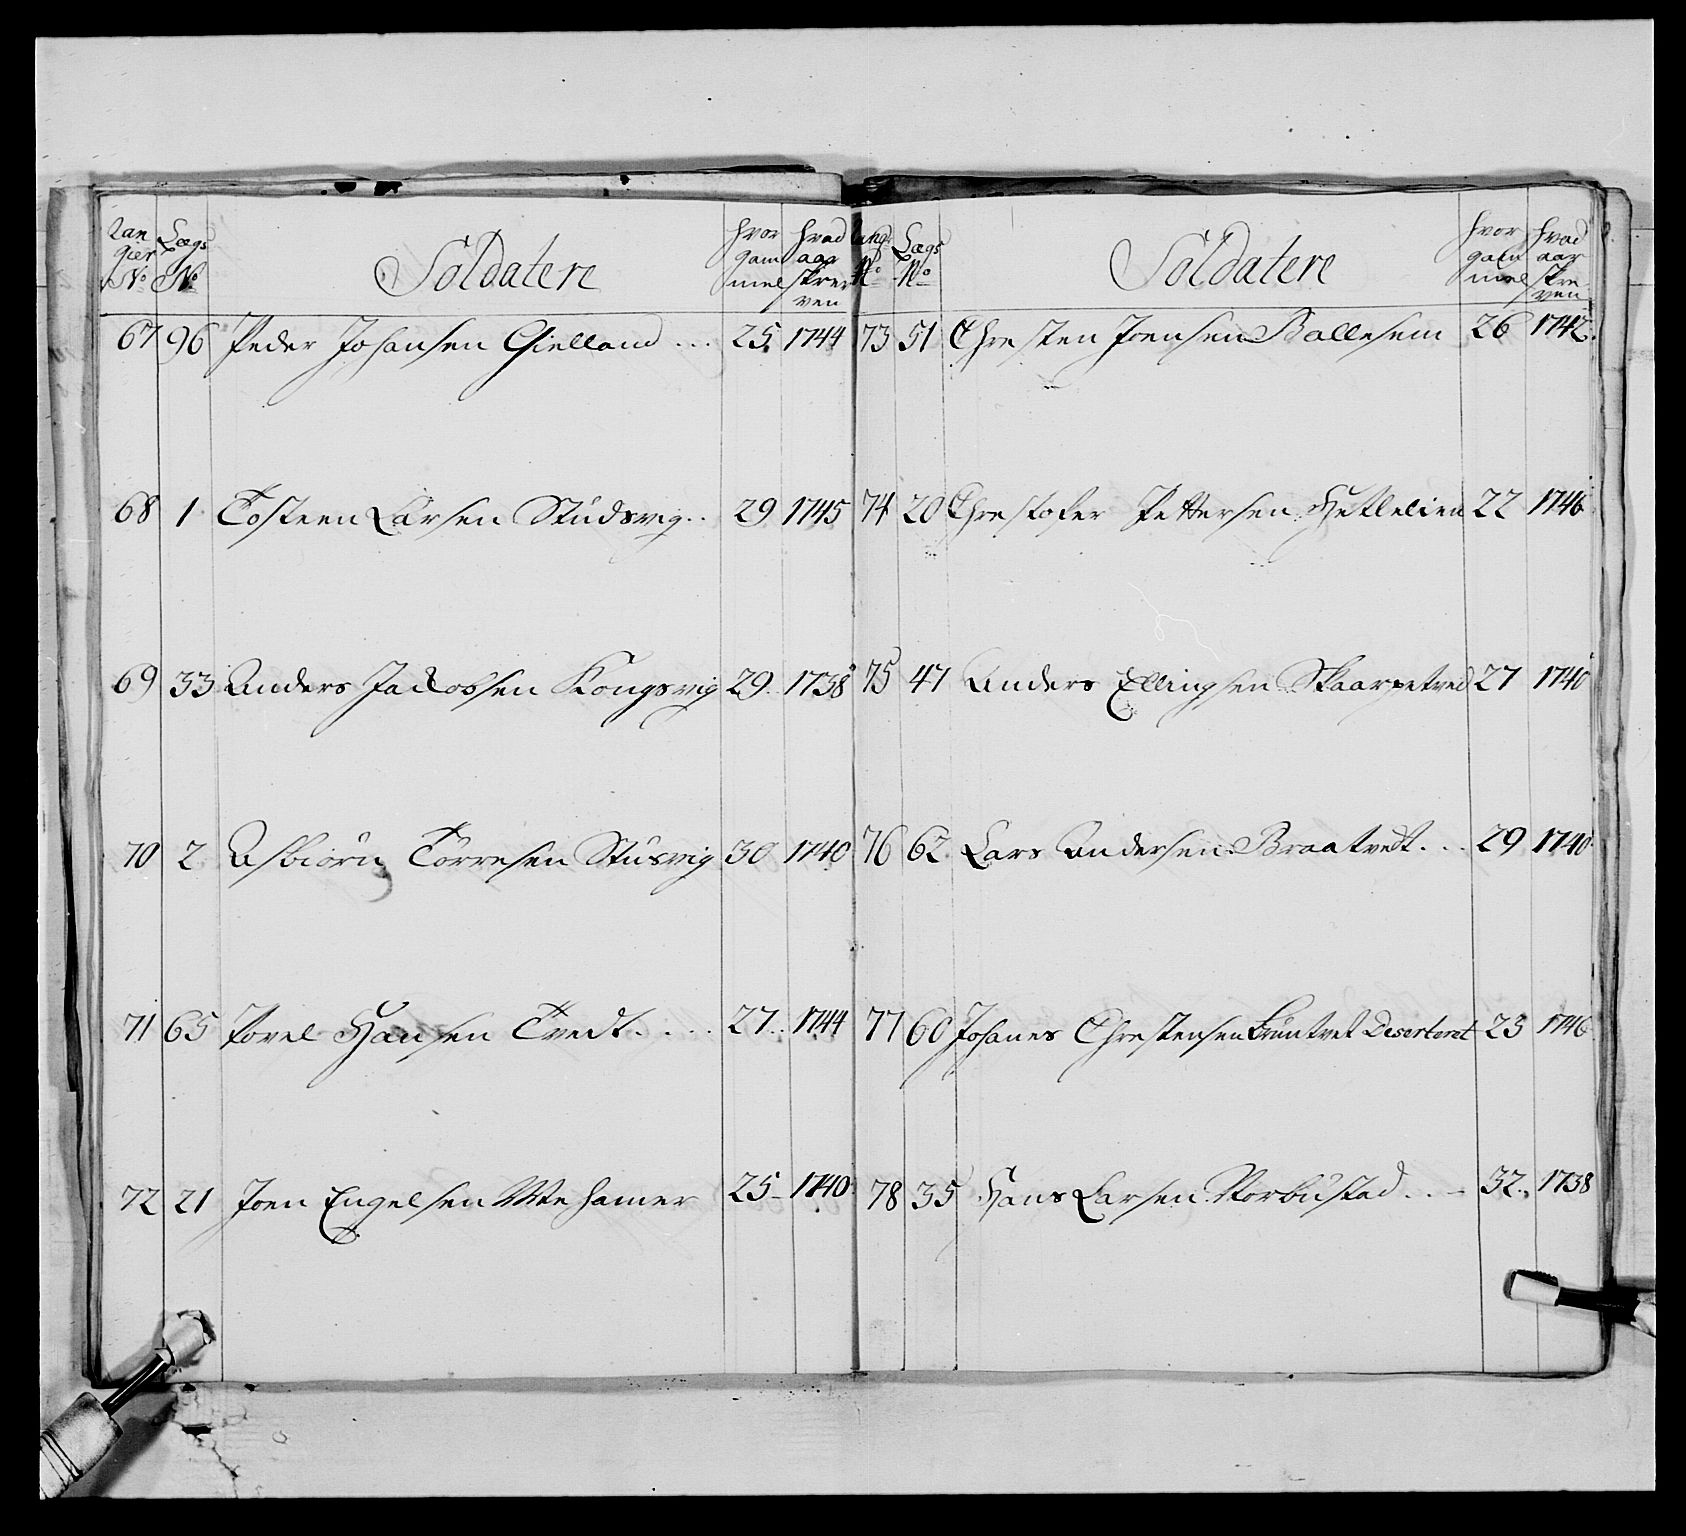 Ran gier No Lægs No Soldatere hvor gam mel hvad aar skrev ven
67 96 Peder Johansen Gielland ... 25 1744
68 1 Tosteen Larsen Studsvig .. 29 1745
69 33 Anders Jacobsen Kongsvig 29 1738
70 2 Asbiörn Törresen Stusvig 30 1740
71 65 Povel Hansen Tvedt .... 27 1744
72 21 Joen Engelsen Wehamer 25 1740
Rang No Lægs No Soldatere hvor gam mel hvad aar skre ven
73 51 Chresten Joensen Ballesem 26 1742
74 20 Chrestofer Pettersen Hetlelien 22 1746
75 47 Anders Ellingsen Skaarpetved 27 1740
76 62 Lars Andersen Braatvedt ... 29 1740
77 60 Johanes Chrestensen Bruntvet Deserteret 23 1746
78 35 Hans Larsen Norbustad ... 32 1738